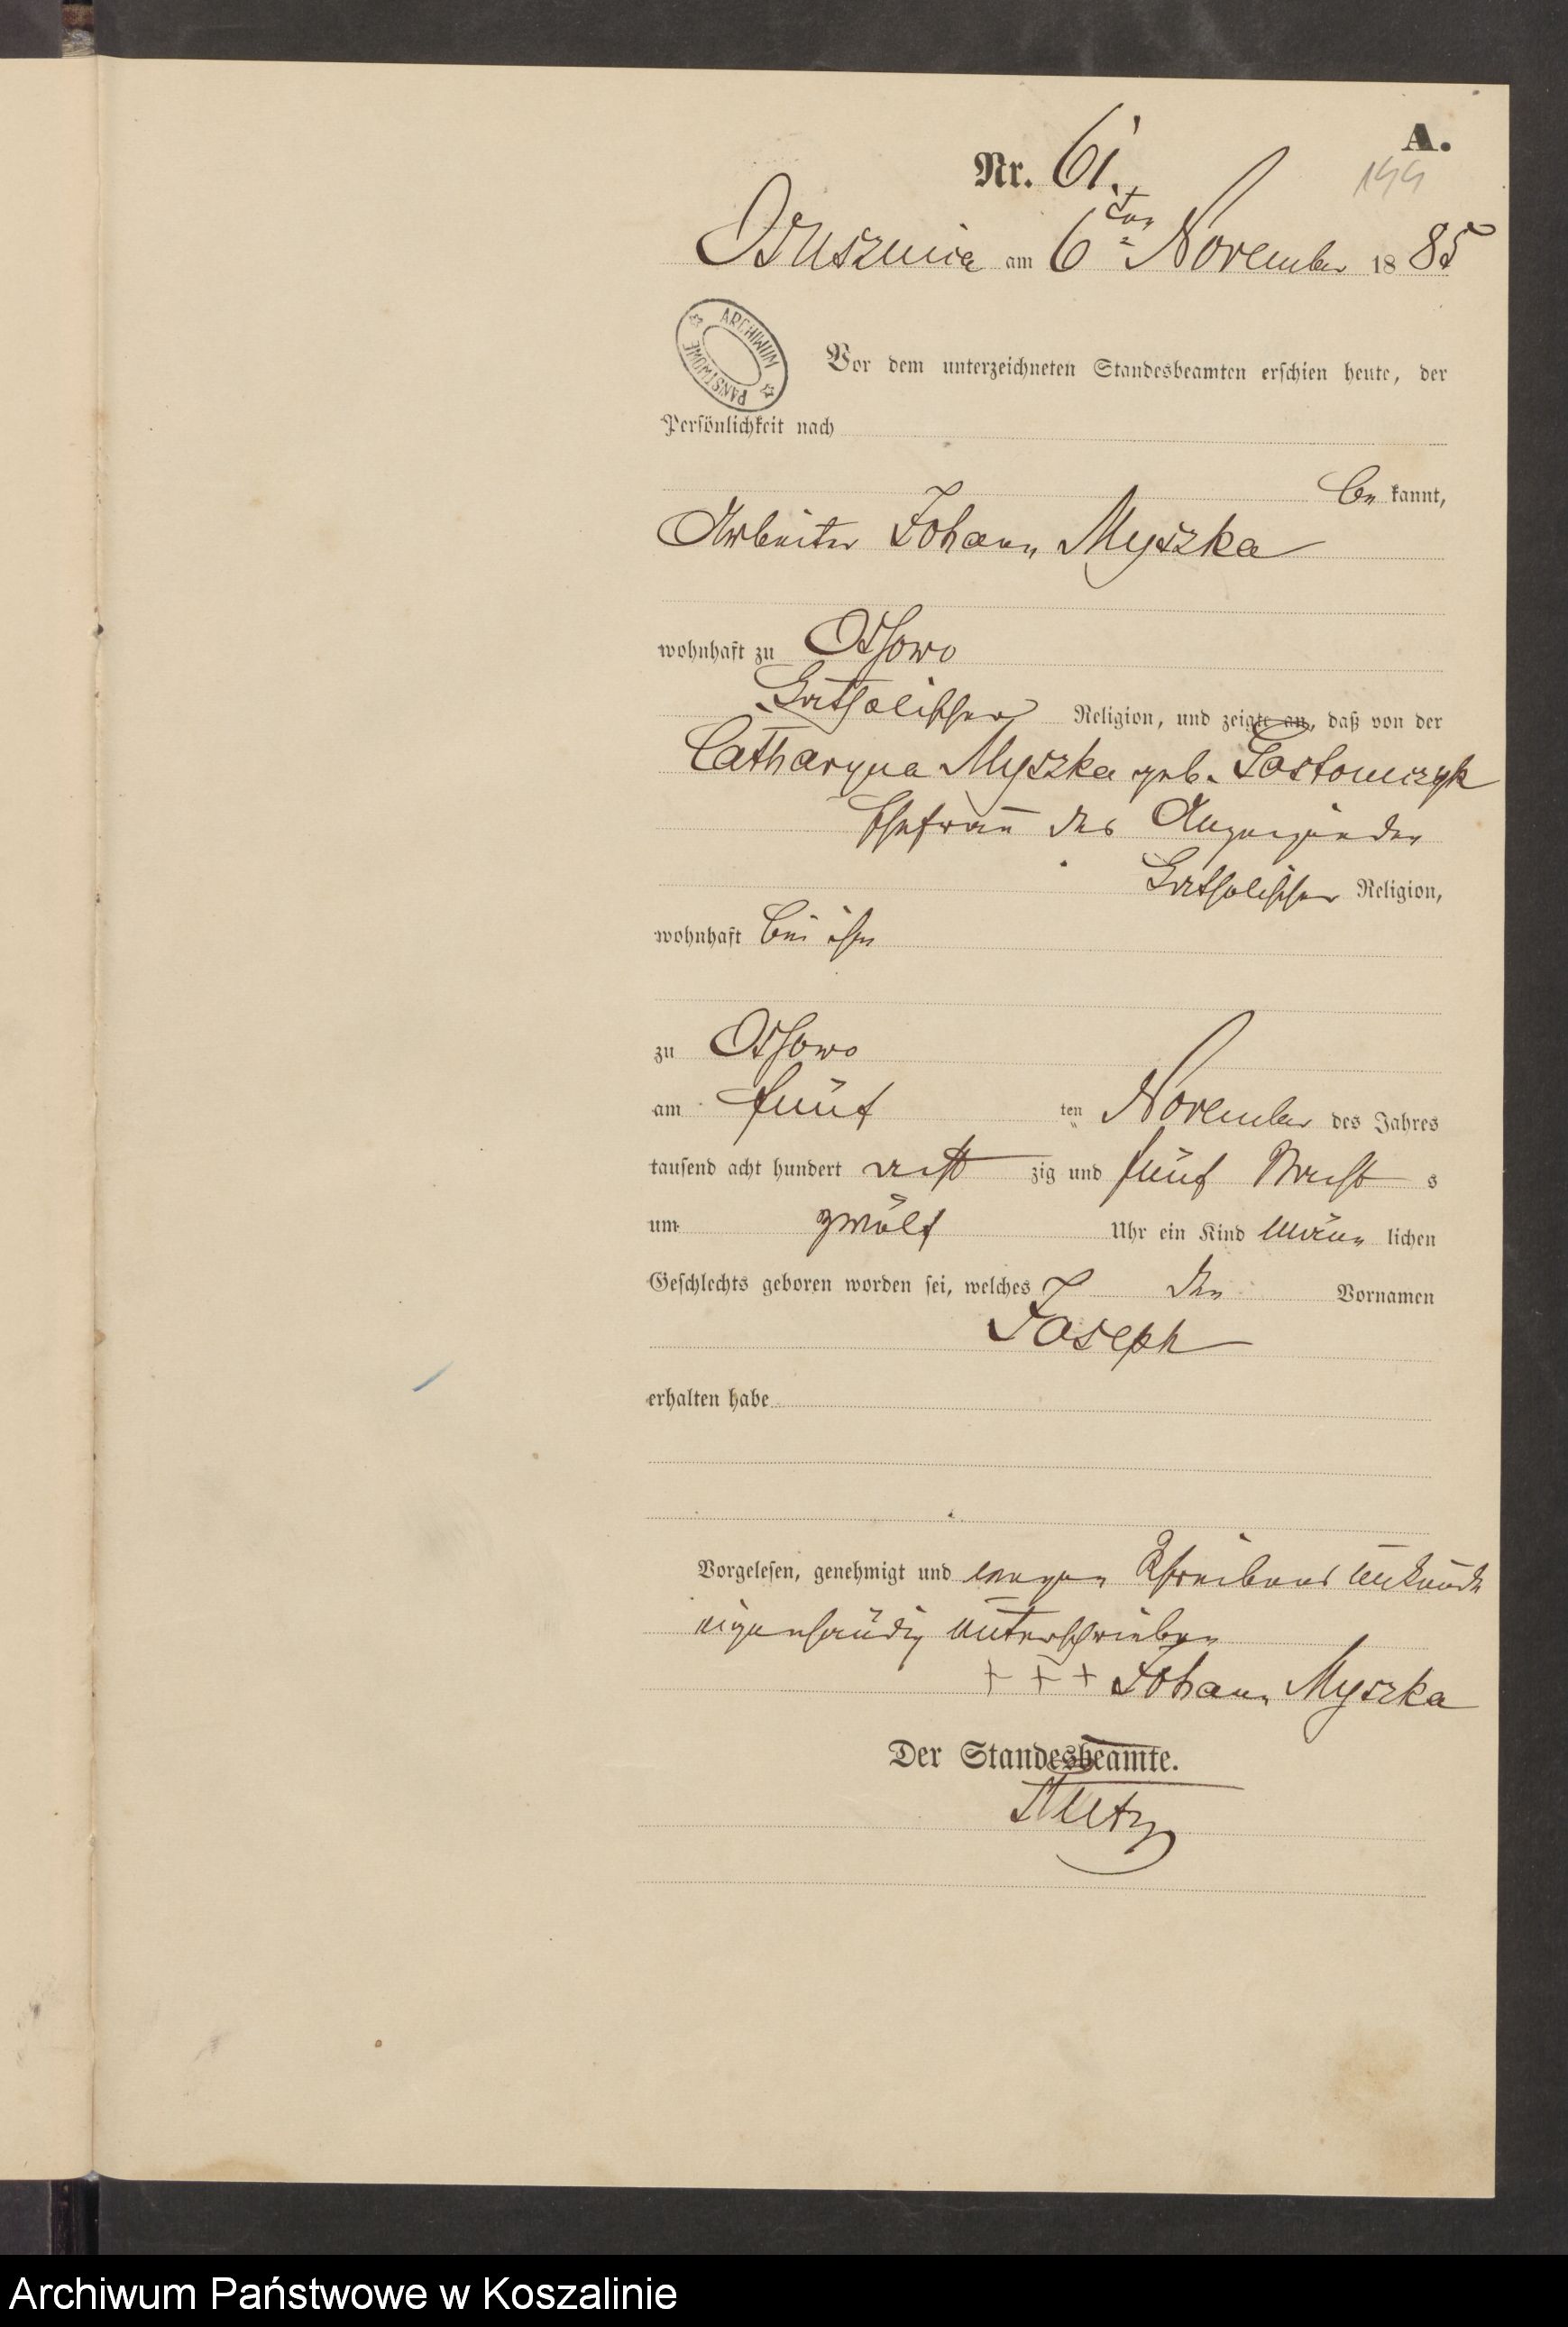 A.
Nr. 61.
199
Osusznica am 6ten November 1885
ARCHIWUM PAŃSTWOWE
Vor dem unterzeichneten Standesbeamten erschien heute, der
Persönlichkeit nach
be kannt,
Arbeiter Johann Myszka
wohnhaft zu Ossowo
katholischer Religion, und zeigte an, daß von der
Catharyna Myszka geb.
Ehefrau des Anzeigenden
katholischer Religion,
wohnhaft bei ihm
zu Ossowo
am fünf ten November des Jahres
tausend acht hundert acht zig und fünf Nacht s
um zwölf Uhr ein Kind männ lichen
Geschlechts geboren worden sei, welches den Vornamen
Joseph
erhalten habe
Vorgelesen, genehmigt und wegen Schreibens unkunde
eigenhändig unterschrieben
+ + + Johann Myszka
Der Standesbeamte.
Archiwum Państwowe w Koszalinie